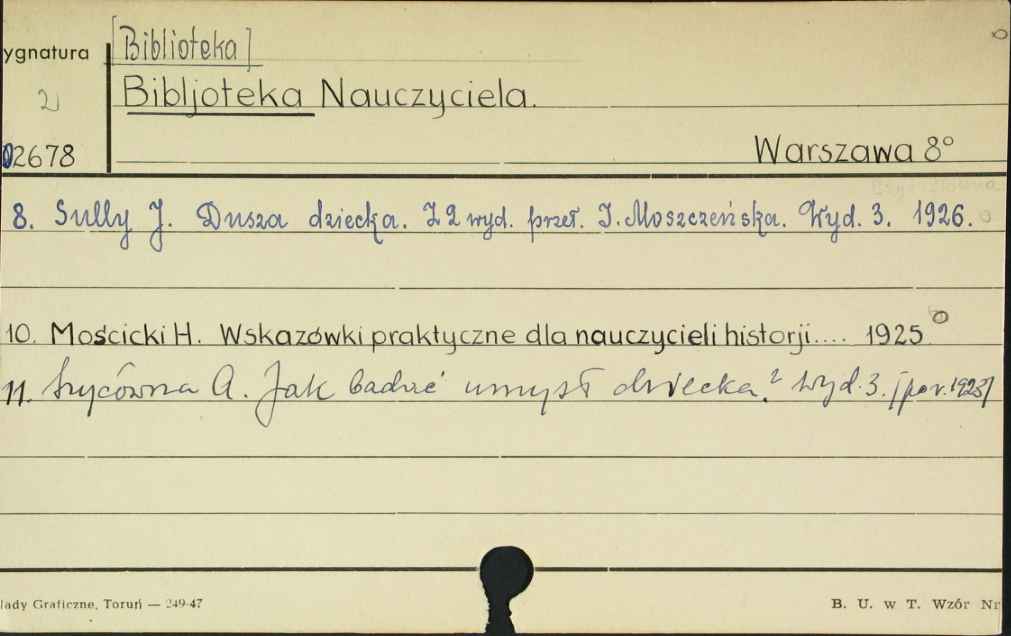 [Biblioteka]
ygnatura
Bibljoteka Nauczyciela.
02678
Warszawa 8°
8. Sully J. Dusza dziecka. Z 2 wyd. przeł. I. Moszczeńska. Wyd. 3. 1926.
10. Mościcki H. Wskazówki praktyczne dla nauczycieli historji.... 1925
11. Szycówna A. Jak badać umysł dziecka? Wyd. 3. [po r. 1923]
łady Graficzne, Toruń — 249-47
B. U. w T. Wzór Nr